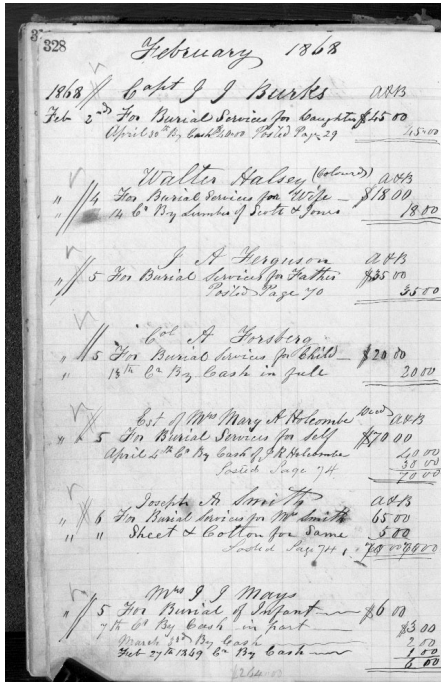 328
February 1868
1868 Capt J J Burks A&B
Feb 2nd For Burial Services for Daughter $45 00
April 30th By Cash 40 00 Posted Page 29 45 00
Walter Halsey (Coloured) A&B
" 4 For Burial Services for Wife $18 00
" 14 Cr By Lumber of Scott & Jones 18 00
J A Ferguson A&B
" 5 For Burial Services for Father $35 00
Posted Page 70 35 00
Col A Forsberg
" 5 For Burial Services for Child $20 00
" 13th Cr By Cash in full 20 00
Est of Mrs Mary A Holcombe Decd A&B
" 5 For Burial Services for Self $70 00
April 4th Cr By Cash of J R Holcombe 40 00
30 00
Posted Page 74 70 00
Joseph A Smith A&B
" 6 For Burial Services for Mrs Smith 65 00
" " Sheet & Cotton for Same 5 00
Posted Page 74 70 00
Mrs J J Mays
" 5 For Burial of Infant $6 00
7th Cr By Cash in part $3 00
March By Cash 2 00
Feb 27th 1869 Cr By Cash 1 00
6 00